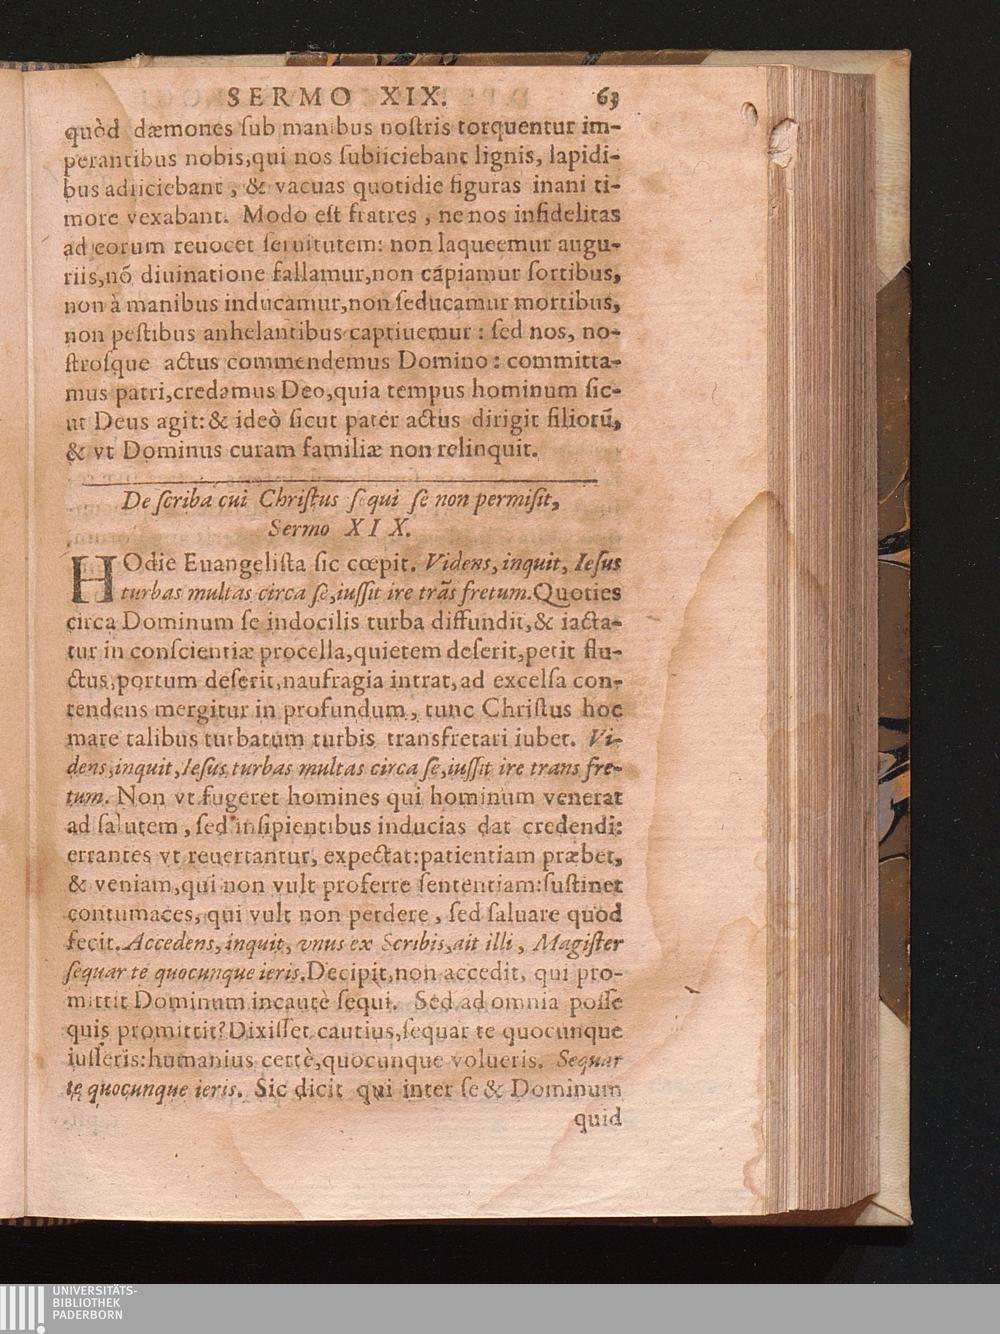 SERMO XIX. 63
quòd dæmones ſub manibus noſtris torquentur im-
perantibus nobis,qui nos ſubiiciebant lignis, lapidi-
bus adiiciebant, & vacuas quotidie figuras inani ti-
more vexabant. Modo eſt fratres, ne nos infidelitas
ad eorum reuocet ſeruitutem: non laqueemur augu-
riis,nõ diuinatione fallamur,non capiamur ſortibus,
non à manibus inducamur,non ſeducamur mortibus,
non peſtibus anhelantibus captiuemur: ſed nos, no-
ſtroſque actus commendemus Domino: committa-
mus patri,credamus Deo,quia tempus hominum ſic-
ut Deus agit:& ideò ſicut pater actus dirigit filiorũ,
& vt Dominus curam familiæ non relinquit.
De ſcriba cui Chriſtus ſequi ſe non permiſit,
Sermo XIX.
HOdie Euangeliſta ſic cœpit. Videns, inquit, Ieſus
turbas multas circa ſe,iuſſit ire trãs fretum.Quoties
circa Dominum ſe indocilis turba diffundit,& iacta-
tur in conſcientiæ procella,quietem deſerit,petit flu-
ctus,portum deſerit,naufragia intrat,ad excelſa con-
tendens mergitur in profundum, tunc Chriſtus hoc
mare talibus turbatum turbis transfretari iubet. Vi-
dens,inquit,Ieſus turbas multas circa ſe,iuſſit ire trans fre-
tum. Non vt fugeret homines qui hominum venerat
ad ſalutem, ſed inſipientibus inducias dat credendi:
errantes vt reuertantur, expectat:patientiam præbet,
& veniam,qui non vult proferre ſententiam:ſuſtinet
contumaces, qui vult non perdere, ſed ſaluare quod
fecit. Accedens, inquit, vnus ex Scribis,ait illi, Magiſter
ſequar te quocunque ieris.Decipit,non accedit, qui pro-
mittit Dominum incautè ſequi. Sed ad omnia poſſe
quis promittit?Dixiſſet cautius,ſequar te quocunque
iuſſeris:humanius certè,quocunque volueris. Sequar
te quocunque ieris. Sic dicit qui inter ſe & Dominum
quid
UNIVERSITÄTS-
BIBLIOTHEK
PADERBORN